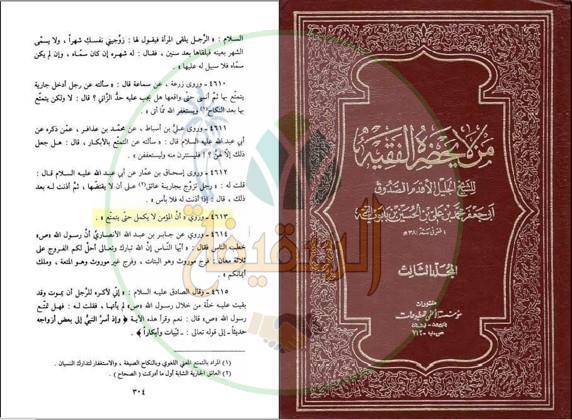 السلام : « الرّجل يلقى المرأة فيقول لها : زوّجيني نفسك شهراً ، ولا يسمّى
الشهر بعينه فيلقاها بعد سنين ، فقال : له شهره إن كان سمّاه ، وإن لم يكن
سمّاه فلا سبيل له عليها » .
٤٦١٠ - وروى زرعة ، عن سماعة قال : « سألته عن رجل أدخل جارية
يتمتّع بها ثمّ أنسي حتّى واقعها هل يجب عليه حدّ الزّاني ؟ قال : لا ولكن يتمتّع
بها بعد النّكاح (١) ويستغفر الله ممّا أتى » .
٤٦١١ - وروى عليّ بن أسباط ، عن محمّد بن عذافر ، عمّن ذكره عن
أبي عبد الله عليه السلام قال : « سألته عن التمتّع بالأبكار ، قال : هل جعل
ذلك إلّا لهنّ ؟ ! فليستترن منه وليستعففن » .
٤٦١٢ - وروى إسحاق بن عمّار عن أبي عبد الله عليه السلام قال :
قلت له : « رجل تزوّج بجارية عاتق (٢) على أن لا يقتضّها ، ثمّ أذنت له بعد
ذلك ، قال : إذا أذنت له فلا بأس » .
٤٦١٣ - وروي « أنّ المؤمن لا يكمل حتّى يتمتّع » .
٤٦١٤ - وروي عن جابر بن عبد الله الأنصاريّ أنّ رسول الله «ص»
خطب النّاس فقال : « أيّها النّاس إنّ الله تبارك وتعالى أحلّ لكم الفروج على
ثلاثة معان : فرج موروث وهو البتات ، وفرج غير موروث وهو المتعة ، وملك
أيمانكم » .
٤٦١٥ - وقال الصادق عليه السلام : « إنّي لأكره للرّجل أن يموت وقد
بقيت عليه خلّة من خلال رسول الله «ص» لم يأتها ، فقلت له : فهل تمتّع
رسول الله «ص» ؟ قال : نعم وقرأ هذه الآية ﴿ وإذ أسرّ النّبيّ إلى بعض أزواجه
حديثاً - إلى قوله تعالى : - ثيّبات وأبكاراً ﴾ .
(١) المراد بالتمتع المعنى اللغوي وبالنكاح الصيغة ، والاستغفار لتدارك النسيان .
(٢) العاتق الجارية الشابة أول ما أدركت ( الصحاح ) .
٣٠٤
من لا يحضره الفقيه
للشيخ الجليل الأقدم الصدوق
أبي جعفر محمد بن علي بن الحسين بن بابويه القمي
المتوفى سنة ٣٨١ هـ
المجلد الثالث
منشورات
مؤسسة الأعلمي للمطبوعات
بيروت - لبنان
ص.ب ٧١٢٠
السقيفة